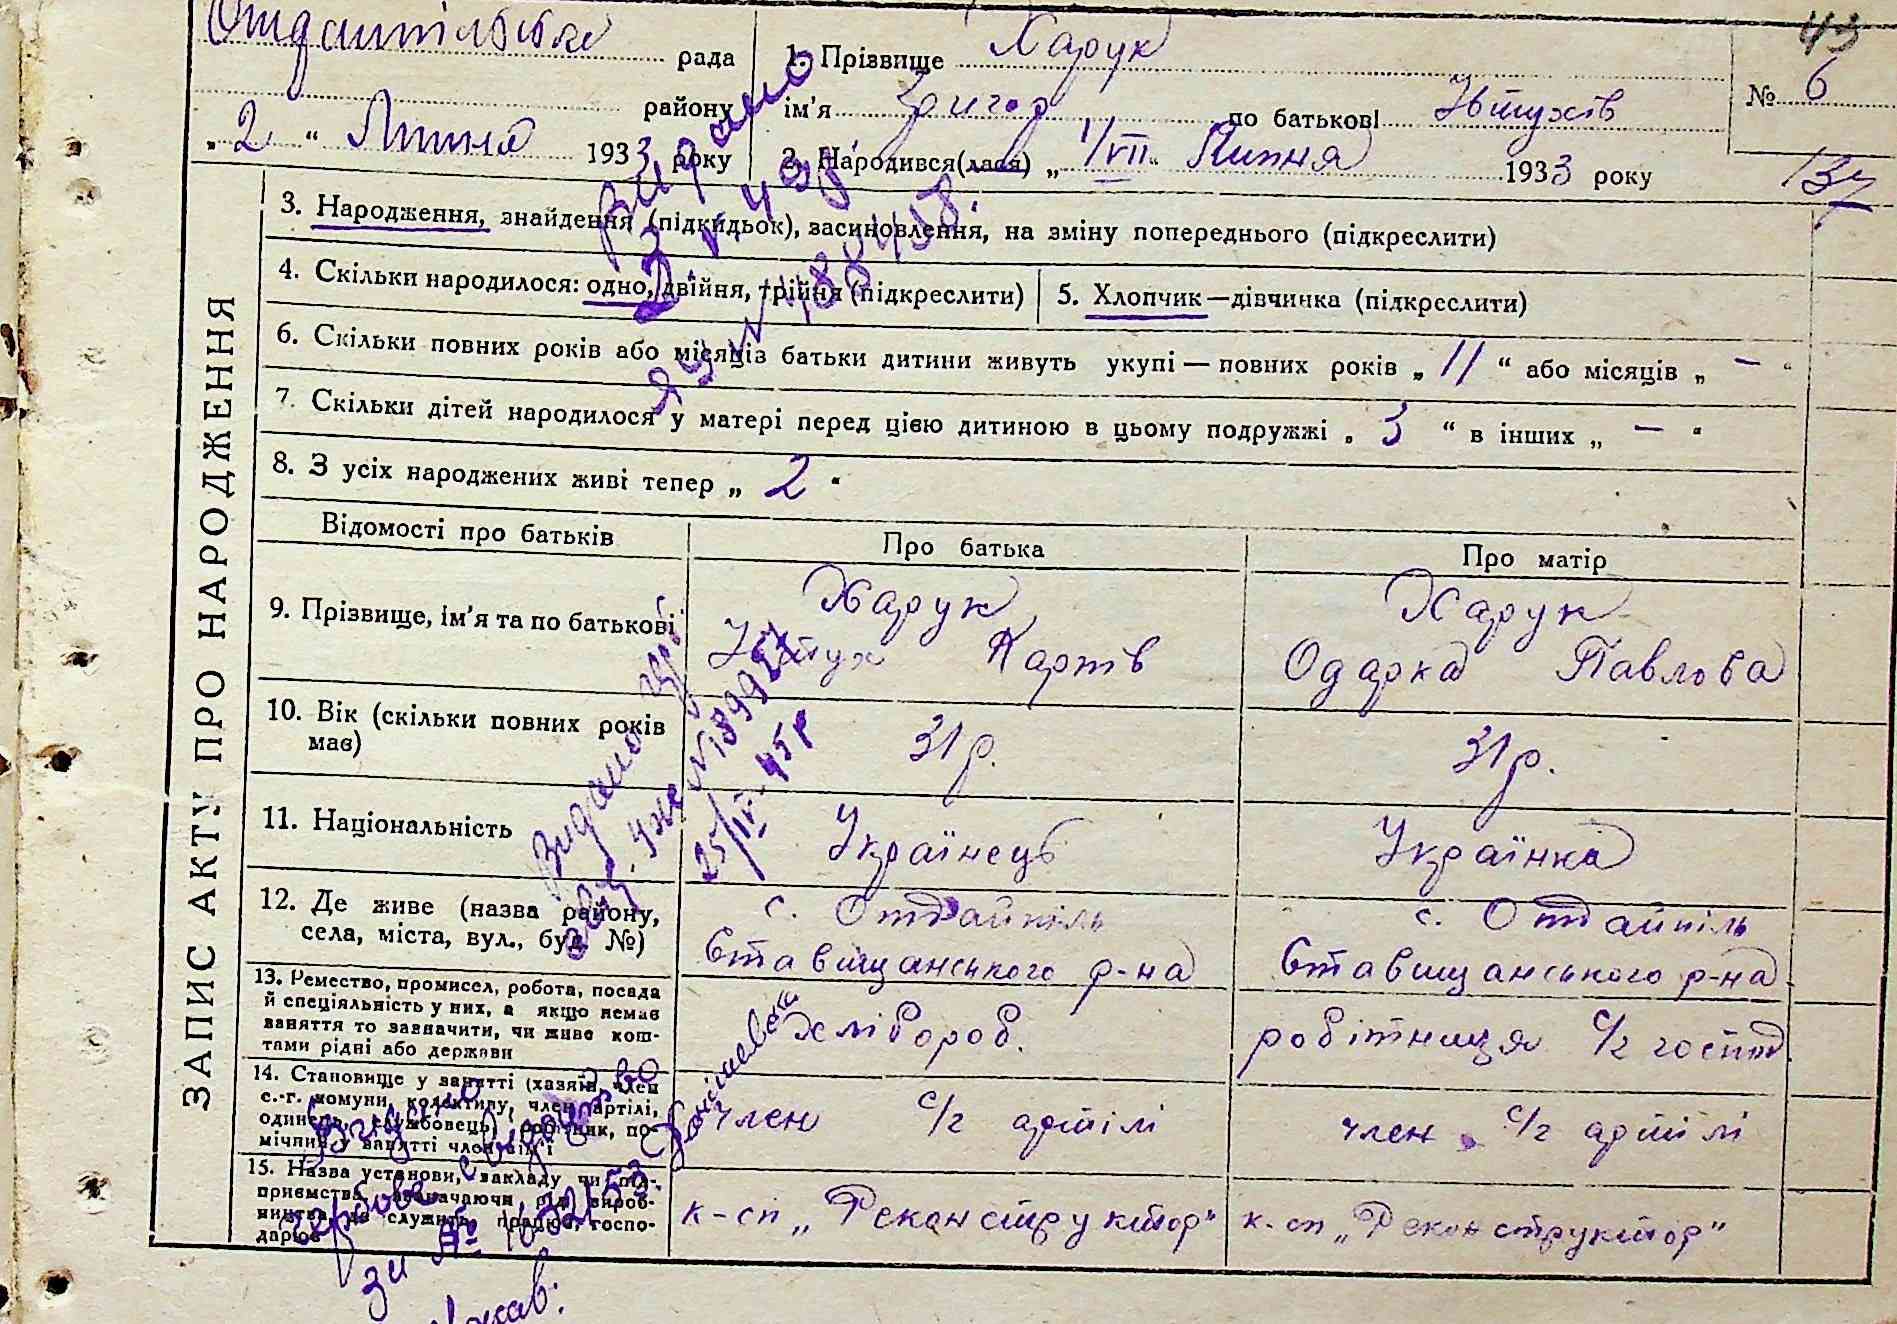 43
рада
1. Прізвище Харук
№ 6
району
ім'я Григор по батькові Явтухів
„2“ Липня 1933 року
2. Народився(лася) „1/VII“ Липня 1933 року
137
ЗАПИС АКТУ ПРО НАРОДЖЕННЯ
3. Народження, знайдення (підкидьок), засиновлення, на зміну попереднього (підкреслити)
4. Скільки народилося: одно, двійня, трійня (підкреслити)
5. Хлопчик—дівчинка (підкреслити)
6. Скільки повних років або місяців батьки дитини живуть укупі — повних років „ 11 “ або місяців „ — “
7. Скільки дітей народилося у матері перед цією дитиною в цьому подружжі „ 3 “ в інших „ — “
8. З усіх народжених живі тепер „ 2 “
Відомості про батьків
Про батька
Про матір
9. Прізвище, ім'я та по батькові
Харук
Явтух Карпів
Харук
Одарка Павлова
10. Вік (скільки повних років
має)
31 р.
31 р.
11. Національність
Українець
Українка
12. Де живе (назва району,
села, міста, вул., буд. №)
с. Отдайпіль
Ставищанського р-на
с. Отдайпіль
Ставищанського р-на
13. Ремество, промисел, робота, посада
й спеціяльність у них, а якщо немає
заняття то зазначити, чи живе кош-
тами рідні або держави
хлібороб.
робітниця с/г господ
14. Становище у занятті (хазяїн, член
с.-г. комуни, колективу, член артілі,
одинець, службовець, робітник, по-
мічник у занятті член сім'ї
член с/г артілі
член с/г артілі
15. Назва установи, закладу чи під-
приємства, зазначаючи рід вироб-
ництва, де служить, працює, госпо-
дарює
к-сп „Реконструктор"
к-сп „Реконструктор"
Видано
Видано
25/IV-45р